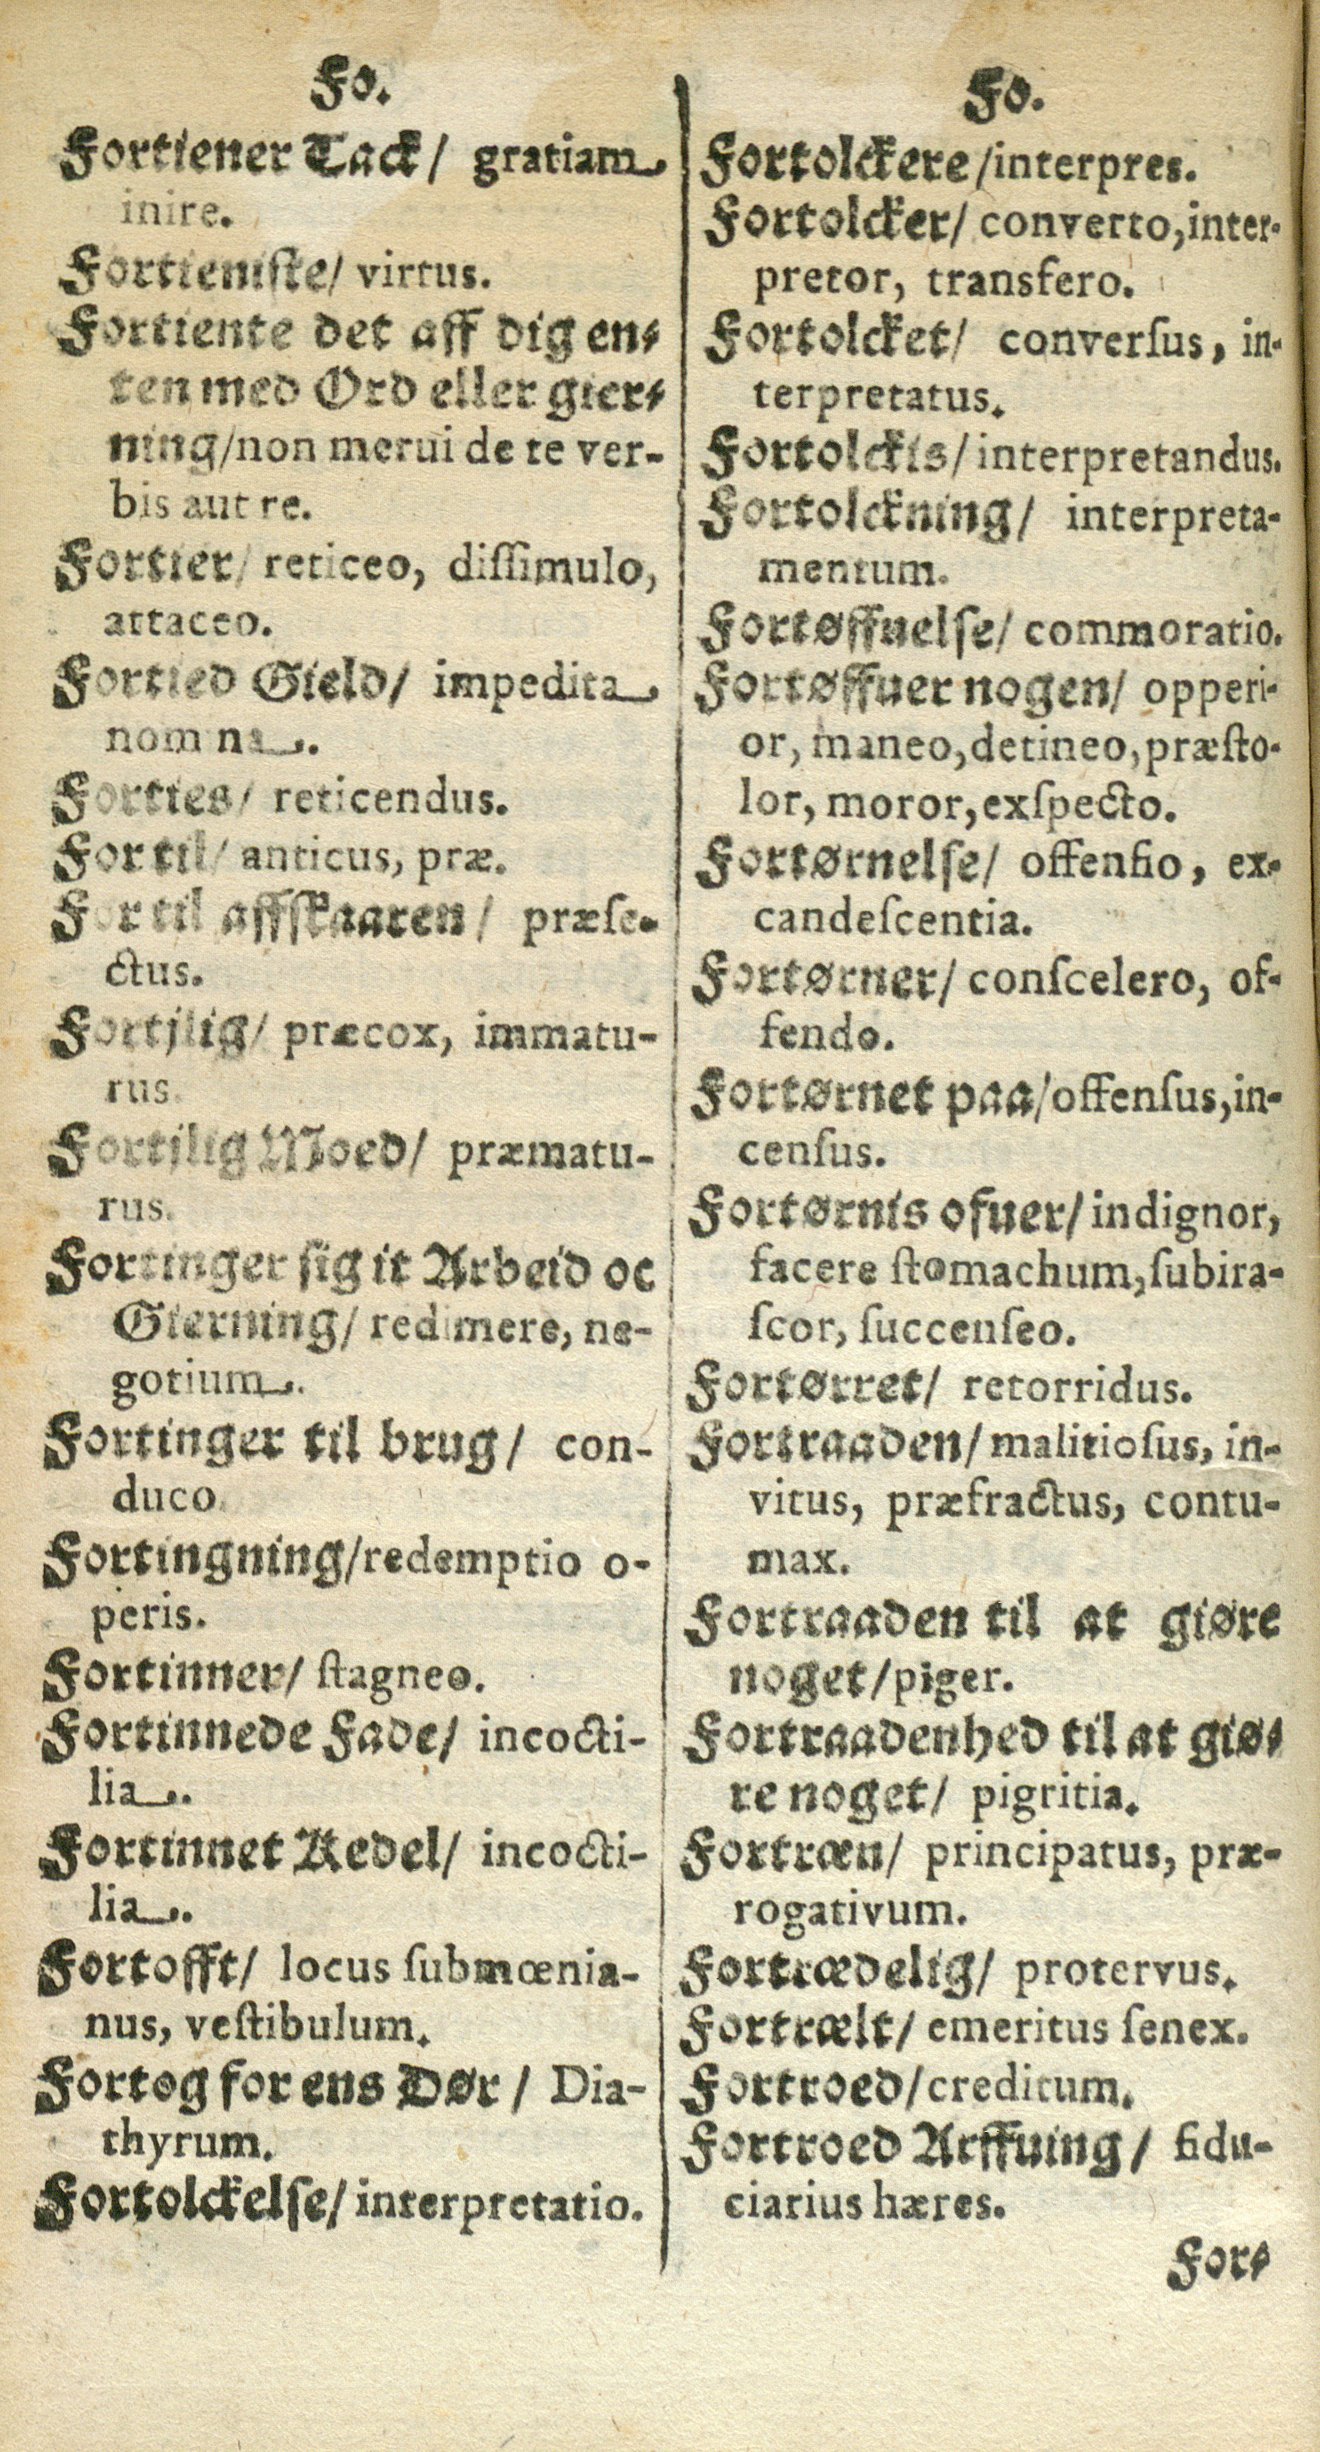 Fo.
Fortiener Tack/ gratiam
inire.
Fortieniſte/ virtus.
Fortiente det aff dig en⸗
ten med Ord eller gier⸗
ning/non merui de te ver-
bis aut re.
Fortier/ reticeo, diſſimulo,
attaceo.
Fortied Gield/ impedita
nomina.
Forties/ reticendus.
For til/ anticus, præ.
For til affſkaaren/ præſe-
ctus.
Fortjlig/ præcox, immatu-
rus.
Fortjlig Moed/ præmatu-
rus.
Fortinger ſig it Arbeid oc
Gierning/ redimere, ne-
gotium.
Fortinger til brug/ con-
duco.
Fortingning/redemptio o-
peris.
Fortinner/ ſtagneo.
Fortinnede Fade/ incocti-
lia.
Fortinnet Kedel/ incocti-
lia.
Fortofft/ locus ſubmœnia-
nus, veſtibulum.
Fortog for ens Dør/ Dia-
thyrum.
Fortolckelſe/interpretatio.
Fo.
Fortolckere/interpres.
Fortolcker/ converto,inter-
pretor, transfero.
Fortolcket/ converſus, in-
terpretatus.
Fortolckis/interpretandus.
Fortolckning/ interpreta-
mentum.
Fortøffuelſe/ commoratio.
Fortøffuer nogen/ opperi-
or, maneo,detineo,præſto-
lor, moror,exſpecto.
Fortørnelſe/ offenſio, ex-
candeſcentia.
Fortørner/ conſcelero, of-
fendo.
Fortørnet paa/offenſus,in-
cenſus.
Fortørnis ofuer/indignor,
facere ſtomachum,ſubira-
ſcor, ſuccenſeo.
Fortørret/ retorridus.
Fortraaden/ malitioſus, in-
vitus, præfractus, contu-
max.
Fortraaden til at giøre
noget/piger.
Fortraadenhed til at giø⸗
re noget/ pigritia.
Fortræn/ principatus, præ-
rogativum.
Fortrædelig/ protervus.
Fortrælt/ emeritus ſenex.
Fortroed/creditum.
Fortroed Arffuing/ fidu-
ciarius hæres.
For⸗